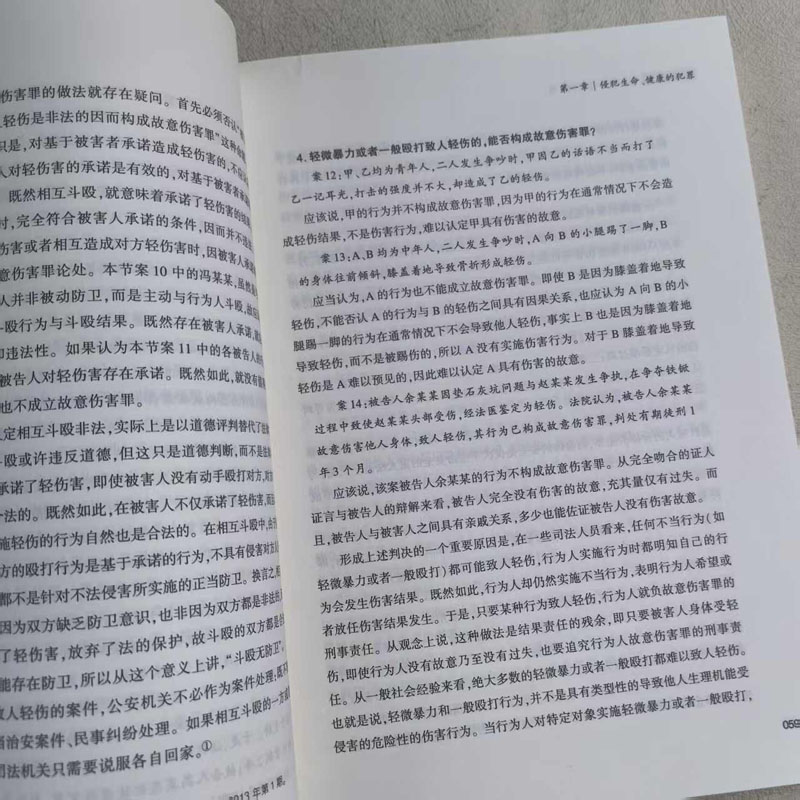 伤害罪的做法就存在疑问。首先必须否认
轻伤是非法的因而构成故意伤害罪”这种
识是,对基于被害者承诺造成轻伤害的,不
人对轻伤害的承诺是有效的,对基于被害者承
。既然相互斗殴,就意味着承诺了轻伤害的
时,完全符合被害人承诺的条件,因而并不
伤害或者相互造成对方轻伤害时,因被害人承
意伤害罪论处。本节案10中的冯某某,虽然
人并非被动防卫,而是主动与行为人斗殴,
殴行为与斗殴结果。既然存在被害人承诺,
和违法性。如果认为本节案11中的各被告人
被告人对轻伤害存在承诺。既然如此,就没有
也不成立故意伤害罪。
定相互斗殴非法,实际上是以道德评判替代了
斗殴或许违反道德,但这只是道德判断,而不是
承诺了轻伤害,即使被害人没有动手殴打对方,对
合法的。既然如此,在被害人不仅承诺了轻伤害,而
施轻伤的行为自然也是合法的。在相互斗殴中,由
方的殴打行为是基于承诺的行为,不具有侵害对方
都不是针对不法侵害所实施的正当防卫。换言之,
因为双方缺乏防卫意识,也非因为双方都是非法的
了轻伤害,放弃了法的保护,故斗殴的双方都是
能存在防卫,所以从这个意义上讲,“斗殴无防卫”
致人轻伤的案件,公安机关不必作为案件处理;
当治安案件、民事纠纷处理。如果相互斗殴的一方
司法机关只需要说服各自回家。①
2013年第1期。
第一章|侵犯生命、健康的犯罪
4.轻微暴力或者一般殴打致人轻伤的,能否构成故意伤害罪?
案12:甲、乙均为青年人,二人发生争吵时,甲因乙的话语不当而打了
乙一记耳光,打击的强度并不大,却造成了乙的轻伤。
应该说,甲的行为并不构成故意伤害罪,因为甲的行为在通常情况下不会造
成轻伤结果,不是伤害行为,难以认定甲具有伤害的故意。
案13:A、B均为中年人,二人发生争吵时,A向B的小腿踢了一脚,B
的身体往前倾斜,膝盖着地导致骨折形成轻伤。
应当认为,A的行为也不能成立故意伤害罪。即使B是因为膝盖着地导致
轻伤,不能否认A的行为与B的轻伤之间具有因果关系,也应认为A向B的小
腿踢一脚的行为在通常情况下不会导致他人轻伤,事实上B也是因为膝盖着地
导致轻伤,而不是被踢伤的,所以A没有实施伤害行为。对于B膝盖着地导致
轻伤是A难以预见的,因此难以认定A具有伤害的故意。
案14:被告人余某某因垫石灰坑问题与赵某某发生争执,在争夺铁锹
过程中致使赵某某头部受伤,经法医鉴定为轻伤。法院认为,被告人余某某
故意伤害他人身体,致人轻伤,其行为已构成故意伤害罪,判处有期徒刑1
年3个月。
应该说,该案被告人余某某的行为不构成故意伤害罪。从完全吻合的证人
证言与被告人的辩解来看,被告人完全没有伤害的故意,充其量仅有过失。而
且,被告人与被害人之间具有亲戚关系,多少也能佐证被告人没有伤害故意。
形成上述判决的一个重要原因是,在一些司法人员看来,任何不当行为(如
轻微暴力或者一般殴打)都可能致人轻伤,行为人实施行为时都明知自己的行
为会发生伤害结果。既然如此,行为人却仍然实施不当行为,表明行为人希望或
者放任伤害结果发生。于是,只要某种行为致人轻伤,行为人就负故意伤害罪的
刑事责任。从观念上说,这种做法是结果责任的残余,即只要被害人身体受轻
伤,即使行为人没有故意乃至没有过失,也要追究行为人故意伤害罪的刑事责
任。从一般社会经验来看,绝大多数的轻微暴力或者一般殴打都难以致人轻伤。
也就是说,轻微暴力和一般殴打行为,并不是具有类型性的导致他人生理机能受
侵害的危险性的伤害行为。当行为人对特定对象实施轻微暴力或者一般殴打,
059